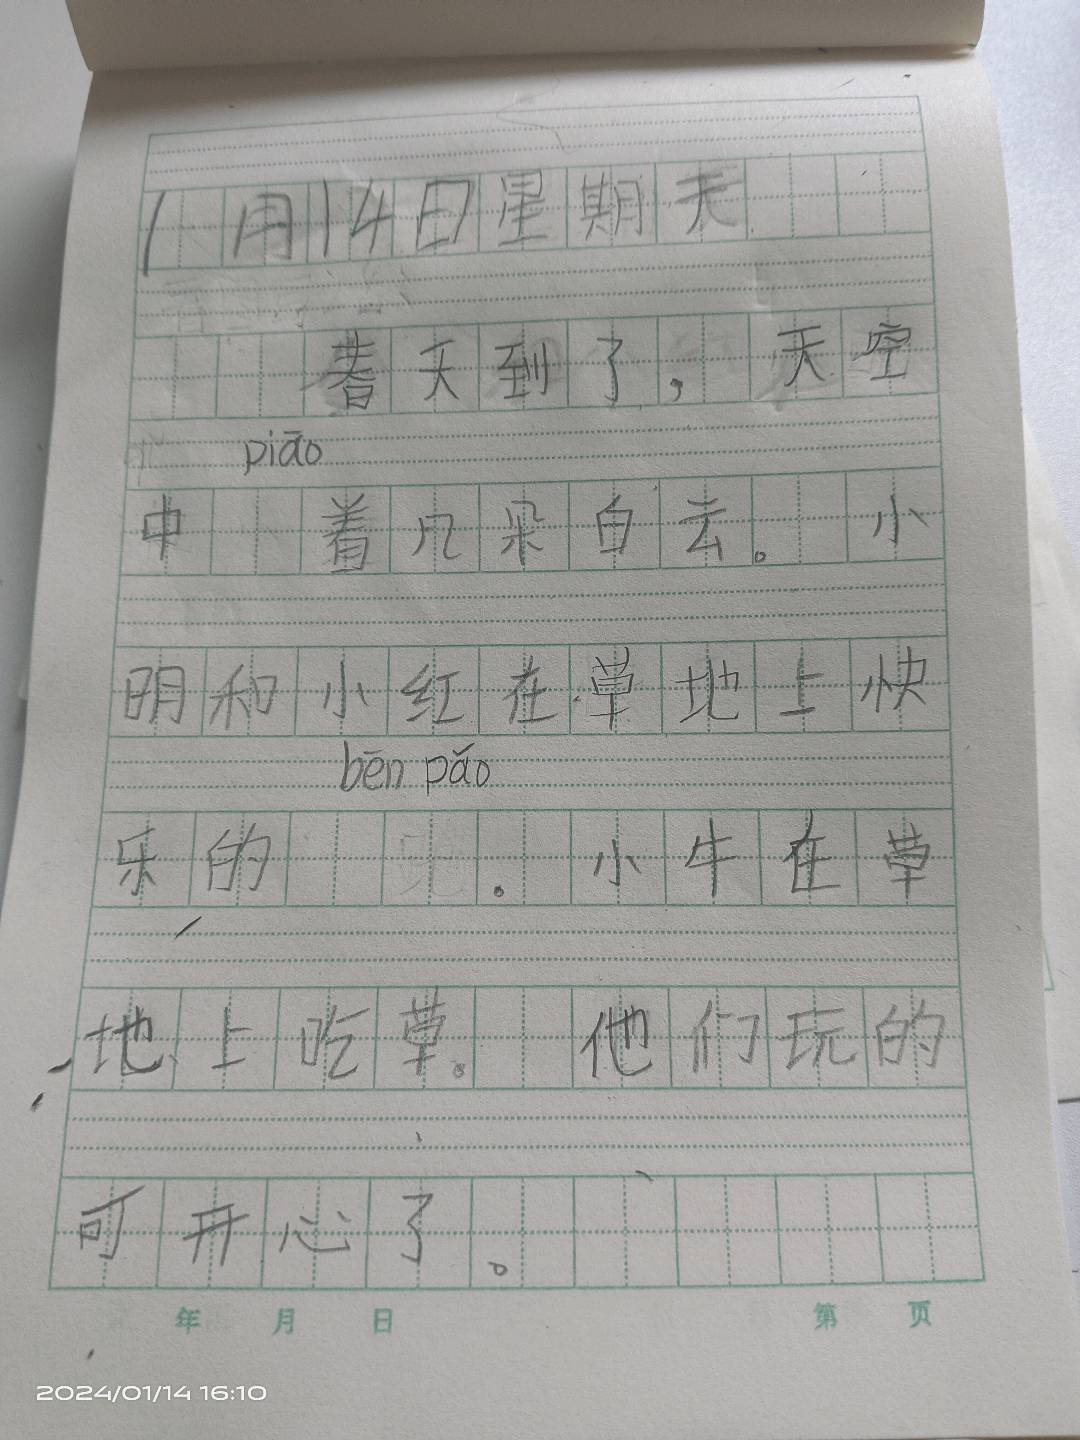 1月14日星期天
春天到了，天空
piāo
中 着几朵白云。小
明和小红在草地上快
bēn pǎo
乐的 。小牛在草
地上吃草。他们玩的
可开心了。
年 月 日 第 页
2024/01/14 16:10